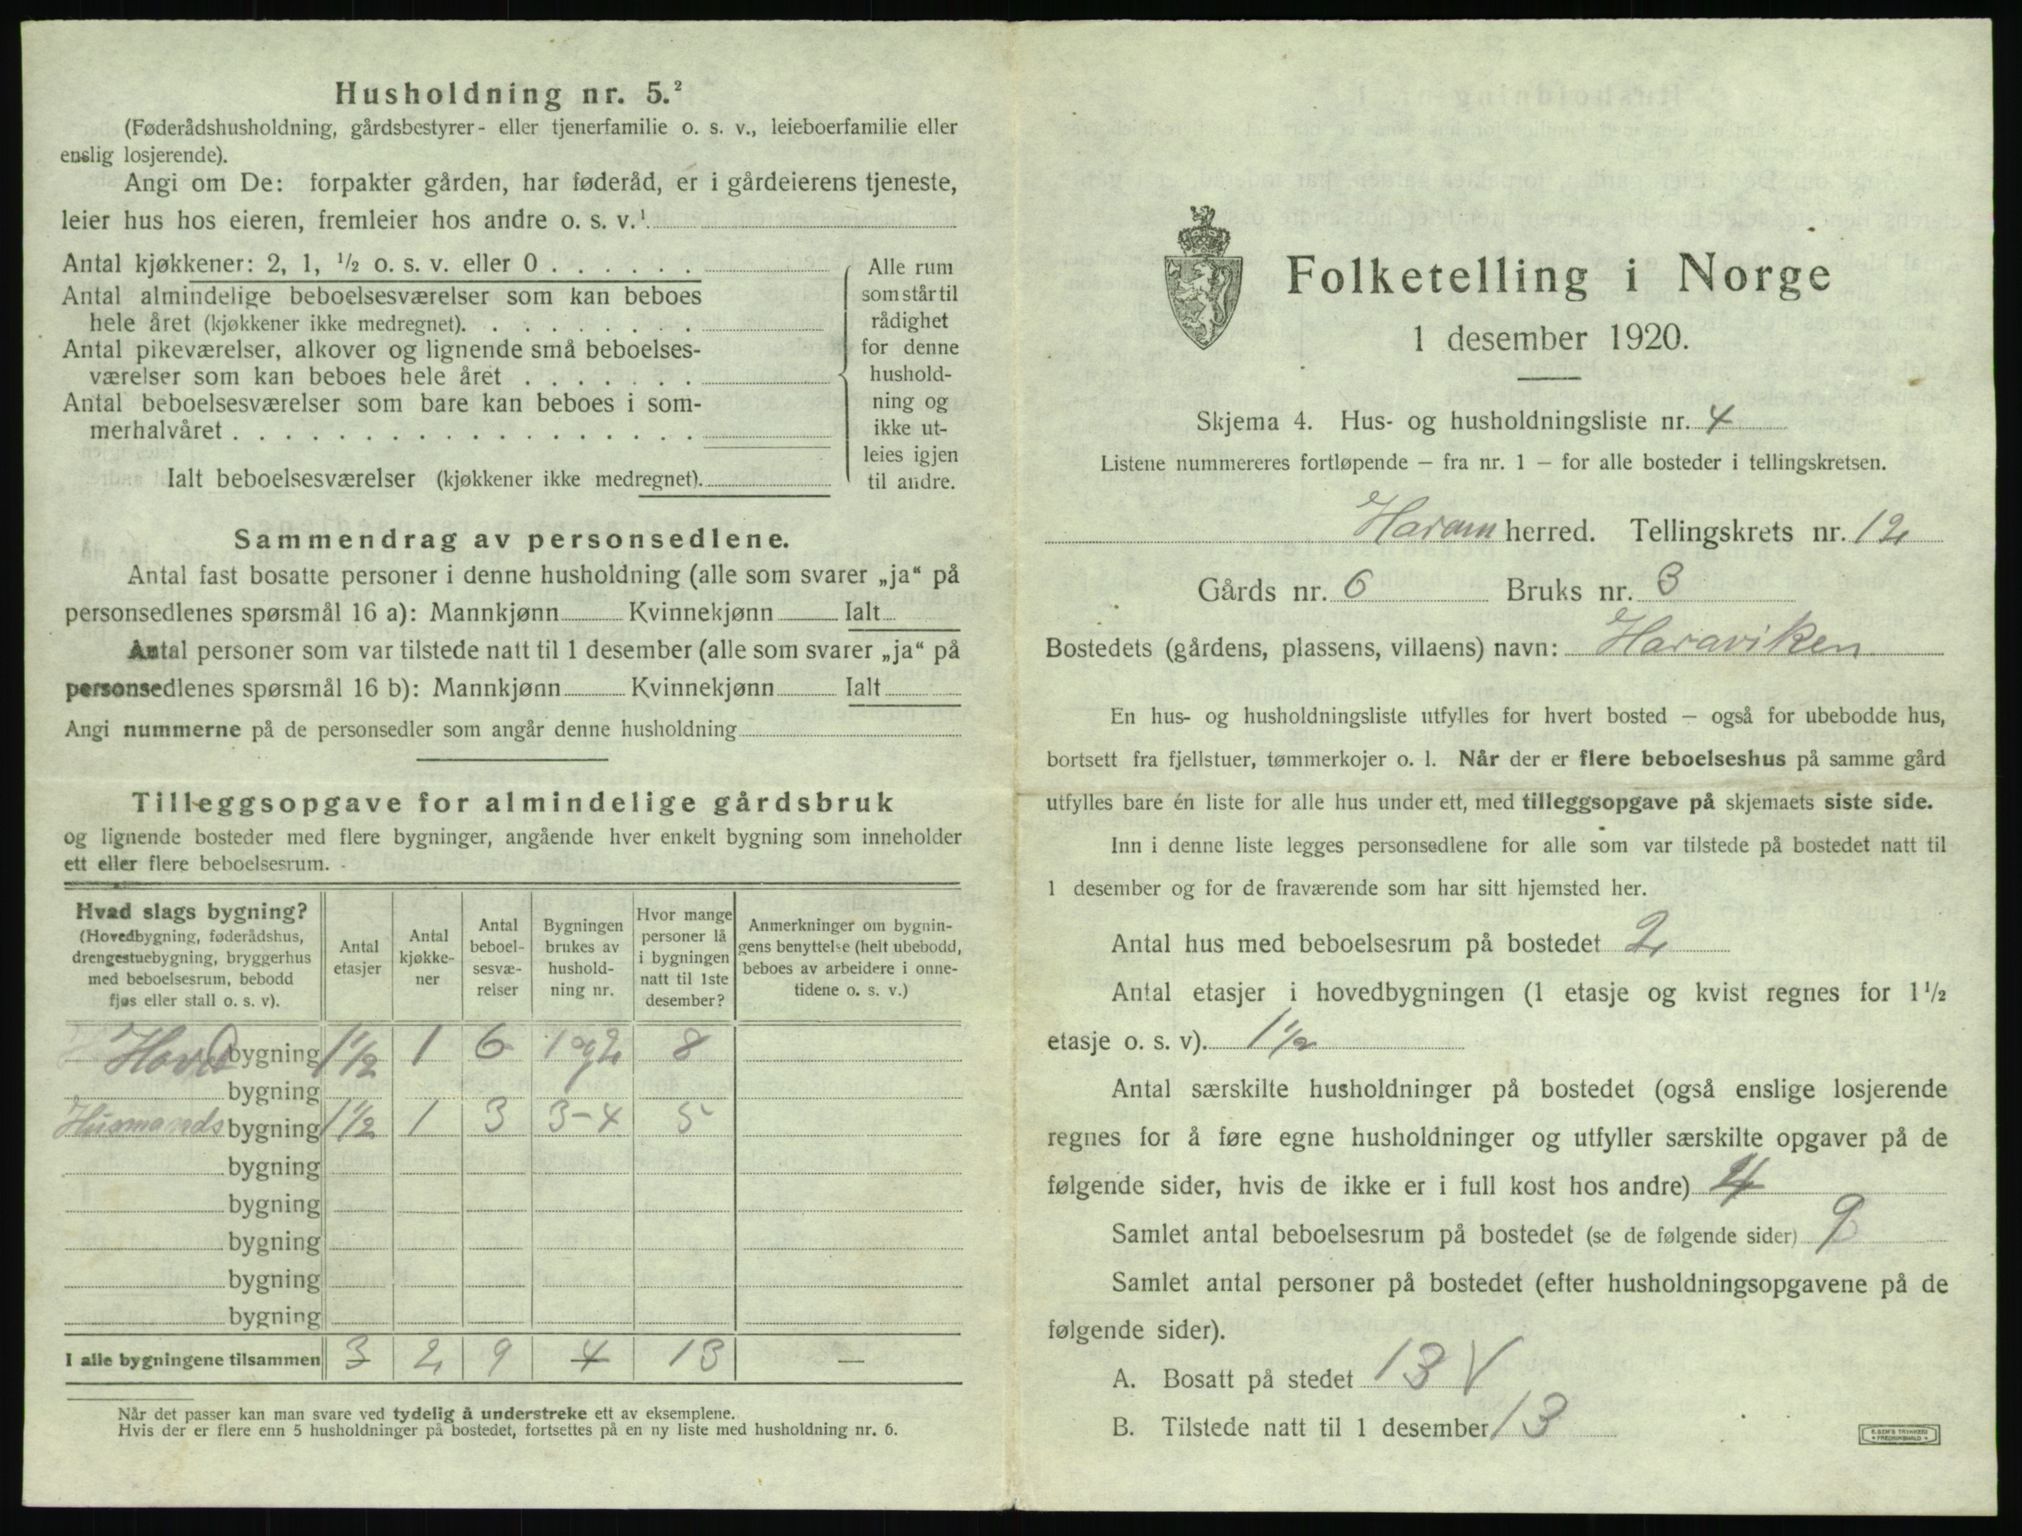 Husholdning nr. 5.²
(Føderådshusholdning, gårdsbestyrer- eller tjenerfamilie o. s. v., leieboerfamilie eller
enslig losjerende).
Angi om De: forpakter gården, har føderåd, er i gårdeierens tjeneste,
leier hus hos eieren, fremleier hos andre o. s. v.¹
Antal kjøkkener: 2, 1, ½ o. s. v. eller 0 . . . . . .
Antal almindelige beboelsesværelser som kan beboes
hele året (kjøkkener ikke medregnet). . . . . . . . .
Antal pikeværelser, alkover og lignende små beboelses-
værelser som kan beboes hele året . . . . . . .
Antal beboelsesværelser som bare kan beboes i som-
merhalvåret . . . . . . . . . . . . . . . . . .
Ialt beboelsesværelser (kjøkkener ikke medregnet).
Alle rum
som står til
rådighet
for denne
hushold-
ning og
ikke ut-
leies igjen
til andre.
Sammendrag av personsedlene.
Antal fast bosatte personer i denne husholdning (alle som svarer „ja“ på
personsedlenes spørsmål 16 a): Mannkjønn Kvinnekjønn Ialt
Antal personer som var tilstede natt til 1 desember (alle som svarer „ja“ på
personsedlenes spørsmål 16 b): Mannkjønn Kvinnekjønn Ialt
Angi nummerne på de personsedler som angår denne husholdning
Tilleggsopgave for almindelige gårdsbruk
og lignende bosteder med flere bygninger, angående hver enkelt bygning som inneholder
ett eller flere beboelsesrum.
Hvad slags bygning?
(Hovedbygning, føderådshus,
drengestuebygning, bryggerhus
med beboelsesrum, bebodd
fjøs eller stall o. s. v).
Antal
etasjer
Antal
kjøkke-
ner
Antal
beboel-
sesvæ-
relser
Bygningen
brukes av
hushold-
ning nr.
Hvor mange
personer lå
i bygningen
natt til 1ste
desember?
Anmerkninger om bygnin-
gens benyttelse (helt ubebodd,
beboes av arbeidere i onne-
tidene o. s. v.)
Hoved bygning 1½ 1 6 1 og 2 8
bygning
Husmands bygning 1½ 1 3 3-4 5
bygning
bygning
bygning
bygning
bygning
I alle bygningene tilsammen 3 2 9 4 13 —
Når det passer kan man svare ved tydelig å understreke ett av eksemplene.
Hvis der er flere enn 5 husholdninger på bostedet, fortsettes på en ny liste med husholdning nr. 6.
Folketelling i Norge
1 desember 1920.
Skjema 4. Hus- og husholdningsliste nr. 4
Listene nummereres fortløpende – fra nr. 1 – for alle bosteder i tellingskretsen.
Haram herred. Tellingskrets nr. 12
Gårds nr. 6 Bruks nr. 3
Bostedets (gårdens, plassens, villaens) navn: Haraviken
En hus- og husholdningsliste utfylles for hvert bosted – også for ubebodde hus,
bortsett fra fjellstuer, tømmerkojer o. l. Når der er flere beboelseshus på samme gård
utfylles bare én liste for alle hus under ett, med tilleggsopgave på skjemaets siste side.
Inn i denne liste legges personsedlene for alle som var tilstede på bostedet natt til
1 desember og for de fraværende som har sitt hjemsted her.
Antal hus med beboelsesrum på bostedet 2
Antal etasjer i hovedbygningen (1 etasje og kvist regnes for 1½
etasje o. s. v). 1½
Antal særskilte husholdninger på bostedet (også enslige losjerende
regnes for å føre egne husholdninger og utfyller særskilte opgaver på de
følgende sider, hvis de ikke er i full kost hos andre) 4
Samlet antal beboelsesrum på bostedet (se de følgende sider) 9
Samlet antal personer på bostedet (efter husholdningsopgavene på de
følgende sider).
A. Bosatt på stedet 13 V
B. Tilstede natt til 1 desember 13
E. SEM'S TRYKKERI
FREDRIKSHALD